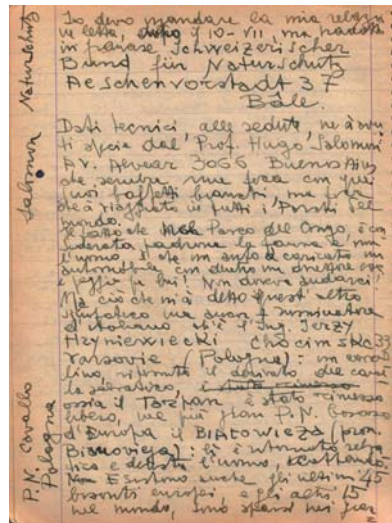 Io devo mandare la mia relaz.
in letta, dopo il 10-VII, ma tradotta
in francese Schweizerischer
Bund für Naturschutz
Aeschenvorstadt 37
Bâle.
Dati tecnici, alle sedute, ne ò avu
ti specie dal Prof. Hugo Salomon
Av. Alvear 3066 Buenos Aires
che sembra una foca con quei
suoi baffetti bianchi, ma
che à viaggiato in tutti i Parchi del
mondo.
Il fatto che nel Parco del Congo, è con
siderata padrona la fauna e non
l'uomo, sì che un auto à caricato un
automobile con dentro un direttore
e peggio per lui! Non doveva andarci!
Ma ciò che mi à detto quest'altro
simpatico ma ancor
d'italiano ch'è l'Ing. Jerzy
Hryniewiecki Chocimska 33
Varsovie (Polonia): un caval
lino, ritornato il
selvatico, è stato rimesso
ossia il Tarpan è stato rimesso
libero, nel più gran P.N. boscoso
d'Europa il Białowieża (pron.
): lì è ritornato selva
tico e detesta l'uomo, scattante.
Non Esistono anche gli ultimi 45
bisonti europei, e gli altri 15
nel mondo, sono sparsi nei
Salomon Naturschutz
P.N. Cavallo
Polonia